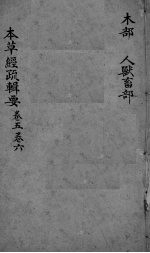 木部　人獸畜部
本草經疏輯要 卷五卷六